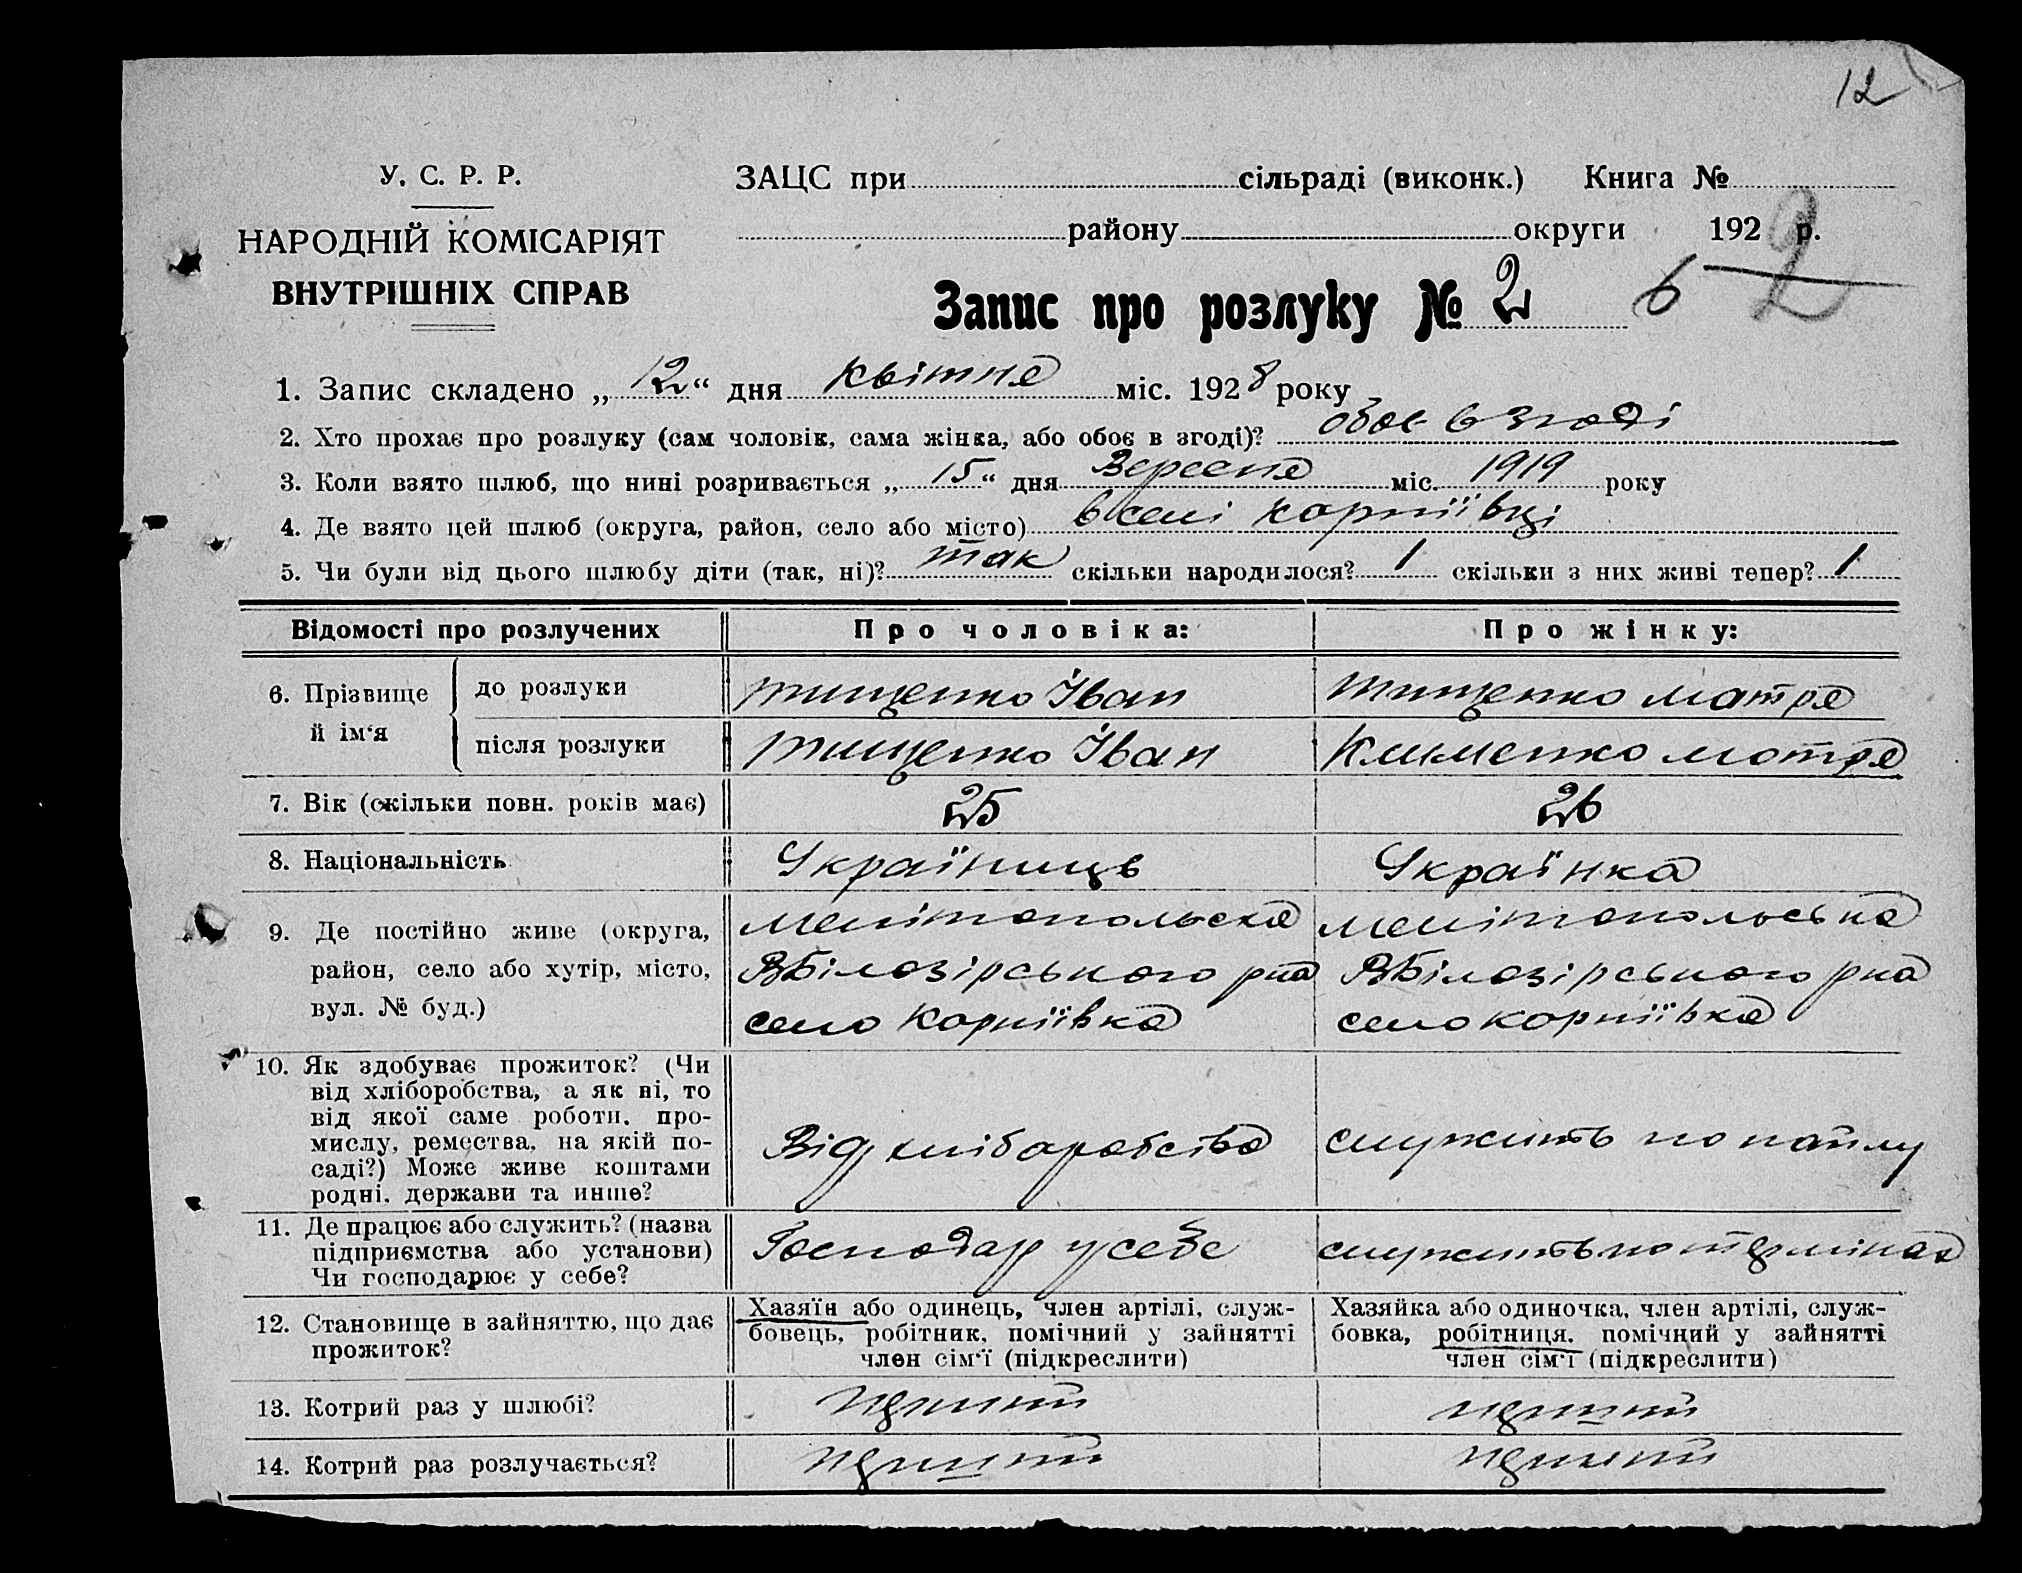 12
У. С. Р. Р.
НАРОДНІЙ КОМІСАРІЯТ
ВНУТРІШНІХ СПРАВ
ЗАЦС при сільраді (виконк.) Книга №
району округи 192 р.
2
Запис про розлуку № 2 6
1. Запис складено „ 12 “ дня квітня міс. 1928 року
2. Хто прохає про розлуку (сам чоловік, сама жінка, або обоє в згоді)? обоє в згоді
3. Коли взято шлюб, що нині розривається „ 15 “ дня Вересня міс. 1919 року
4. Де взято цей шлюб (округа, район, село або місто) в селі корніївці
5. Чи були від цього шлюбу діти (так, ні)? так скільки народилося? 1 скільки з них живі тепер? 1
Відомості про розлучених Про чоловіка: Про жінку:
6. Прізвище й ім‘я до розлуки тищенко Іван тищенко мотря
після розлуки тищенко Іван Клименко мотря
7. Вік (скільки повн. років має) 25 26
8. Національність Українець Українка
9. Де постійно живе (округа, мелітопольска мелітопольська
район, село або хутір, місто, ВБілозірського рна ВБілозірського рна
вул. № буд.) село Корніївка село корніївка
10. Як здобуває прожиток? (Чи
від хліборобства, а як ні, то
від якої саме роботи, про-
мислу, ремества, на якій по- Від хліборобства служить по найму
саді?) Може живе коштами
родні, держави та инше?
11. Де працює або служить? (назва
підприємства або установи) Господар усебе служить по
Чи господарює у себе?
12. Становище в зайняттю, що дає
прожиток?
Хазяїн або одинець, член артілі, служ-
бовець, робітник, помічний у зайнятті
член сім‘ї (підкреслити)
Хазяйка або одиночка, член артілі, служ-
бовка, робітниця, помічний у зайнятті
член сім‘ї (підкреслити)
13. Котрий раз у шлюбі? перший перший
14. Котрий раз розлучається? перший перший